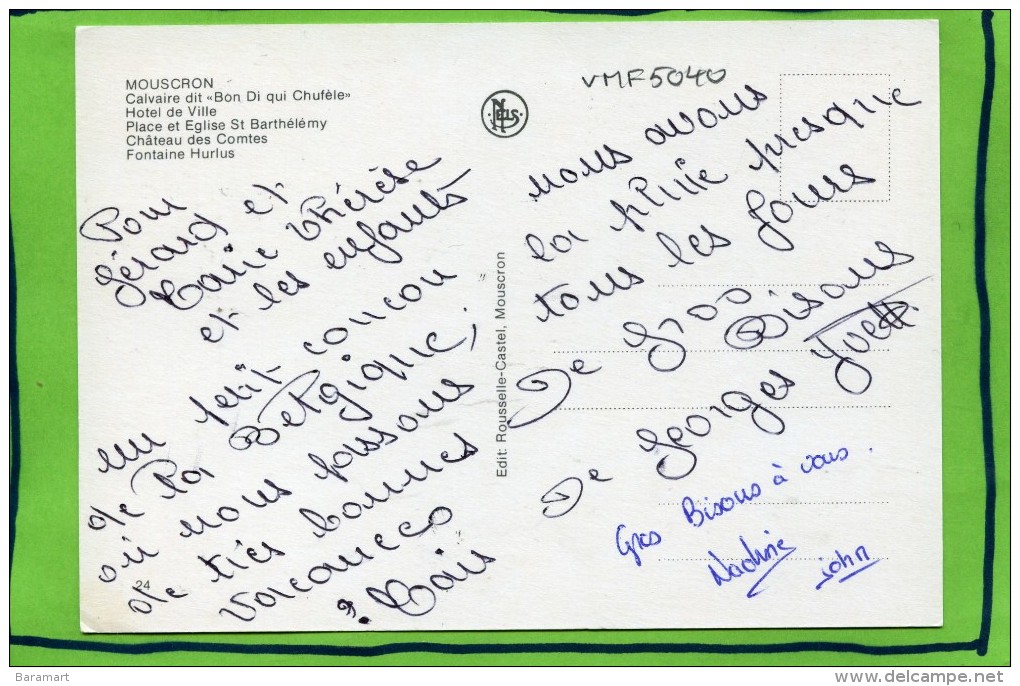 MOUSCRON
Calvaire dit «Bon Di qui Chufèle»
Hotel de Ville
Place et Eglise St Barthélémy
Château des Comtes
Fontaine Hurlus
NELS
VMF5040
Pour
Gérard et
Marie Thérèse
et les enfants
un petit coucou
de la Belgique,
où nous passons
de très bonnes
vacances
Mais
24
Edit: Rousselle-Castel, Mouscron
nous avons
la pluie presque
tous les Jours
De Gros Bisous
De Georges Yvette
Gros Bisous à vous.
Nadine
john
Baramart
www.delcampe.net